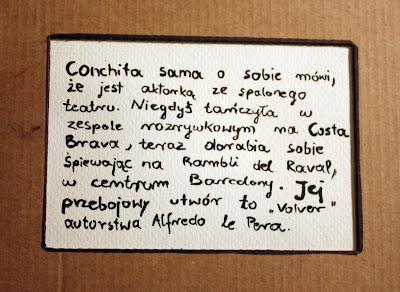 Conchita sama o sobie mówi,
że jest aktorką ze spalonego
teatru. Niegdyś tańczyła w
zespole rozrywkowym na Costa
Brava, teraz dorabia sobie
śpiewając na Rambli del Raval,
w centrum Barcelony. Jej
przebojowy utwór to „Volver"
autorstwa Alfredo Le Pera.